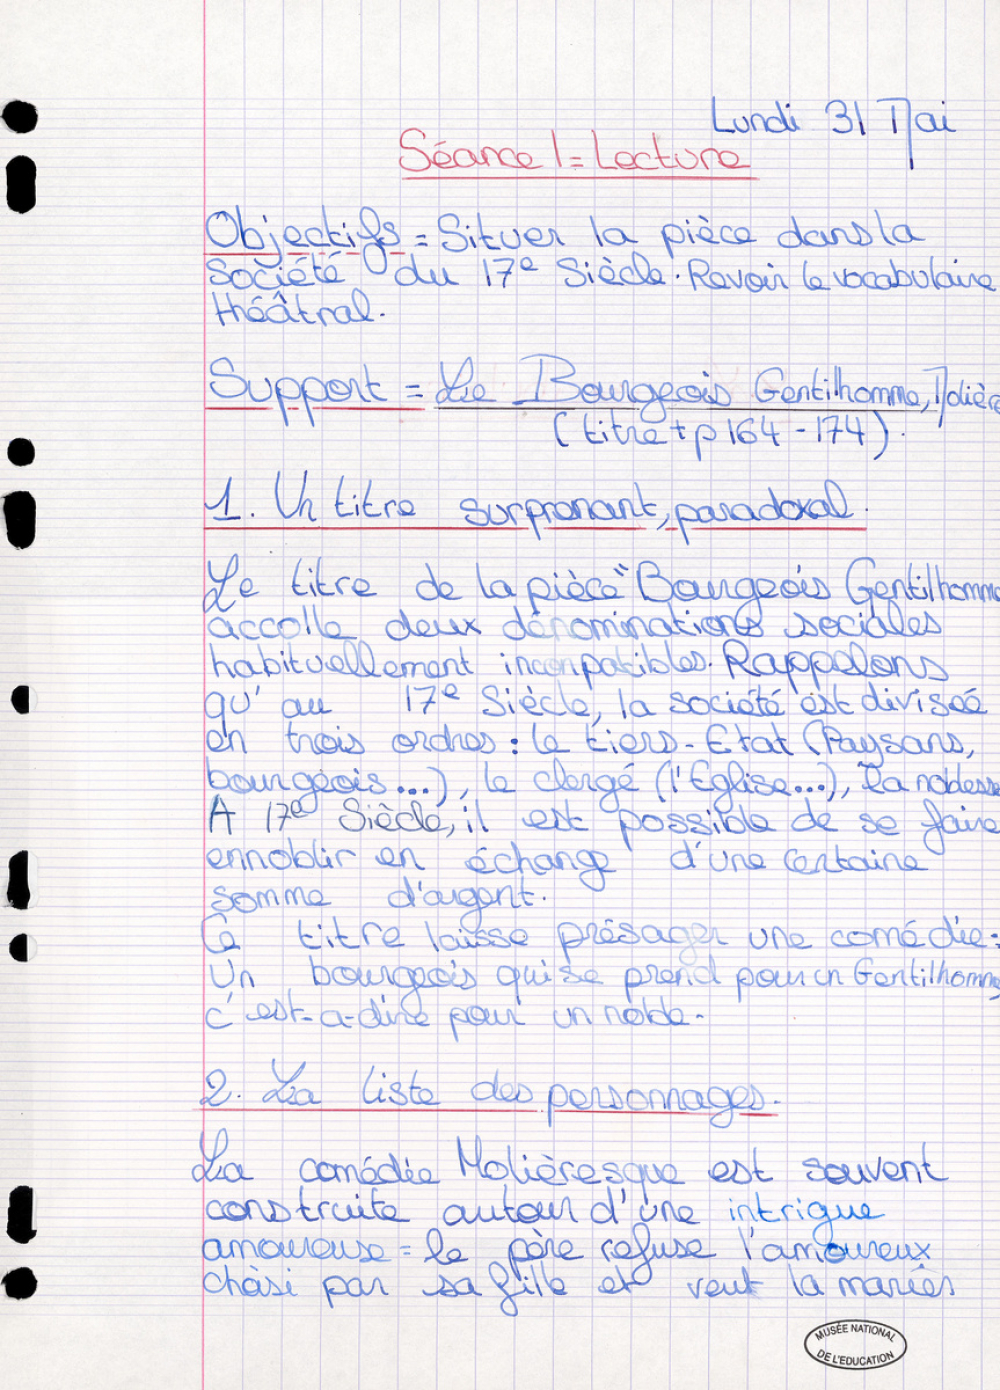 Lundi 31 Mai
Séance 1 = Lecture
Objectifs = Situer la pièce dans la
Société du 17e Siècle. Revoir le vocabulaire
théâtral.
Support = Le Bourgeois Gentilhomme, Molière
(titre + p 164 - 174).
1. Un titre surprenant, paradoxal.
Le titre de la pièce "Bourgeois Gentilhomme
accolle deux dénominations sociales
habituellement incompatibles. Rappelons
qu'au 17e Siècle, la société est divisée
en trois ordres : le tiers-Etat (Paysans,
bourgeois...), le clergé (l'Eglise...), la noblesse
A 17e Siècle, il est possible de se faire
ennoblir en échange d'une certaine
somme d'argent.
Ce titre laisse présager une comédie :
Un bourgeois qui se prend pour un Gentilhomme
c'est-a-dire pour un noble.
2. La liste des personnages.
La comédie Molièresque est souvent
construite autour d'une intrigue
amoureuse = le père refuse l'amoureux
choisi par sa fille et veut la mariés
MUSÉE NATIONAL
DE L'EDUCATION